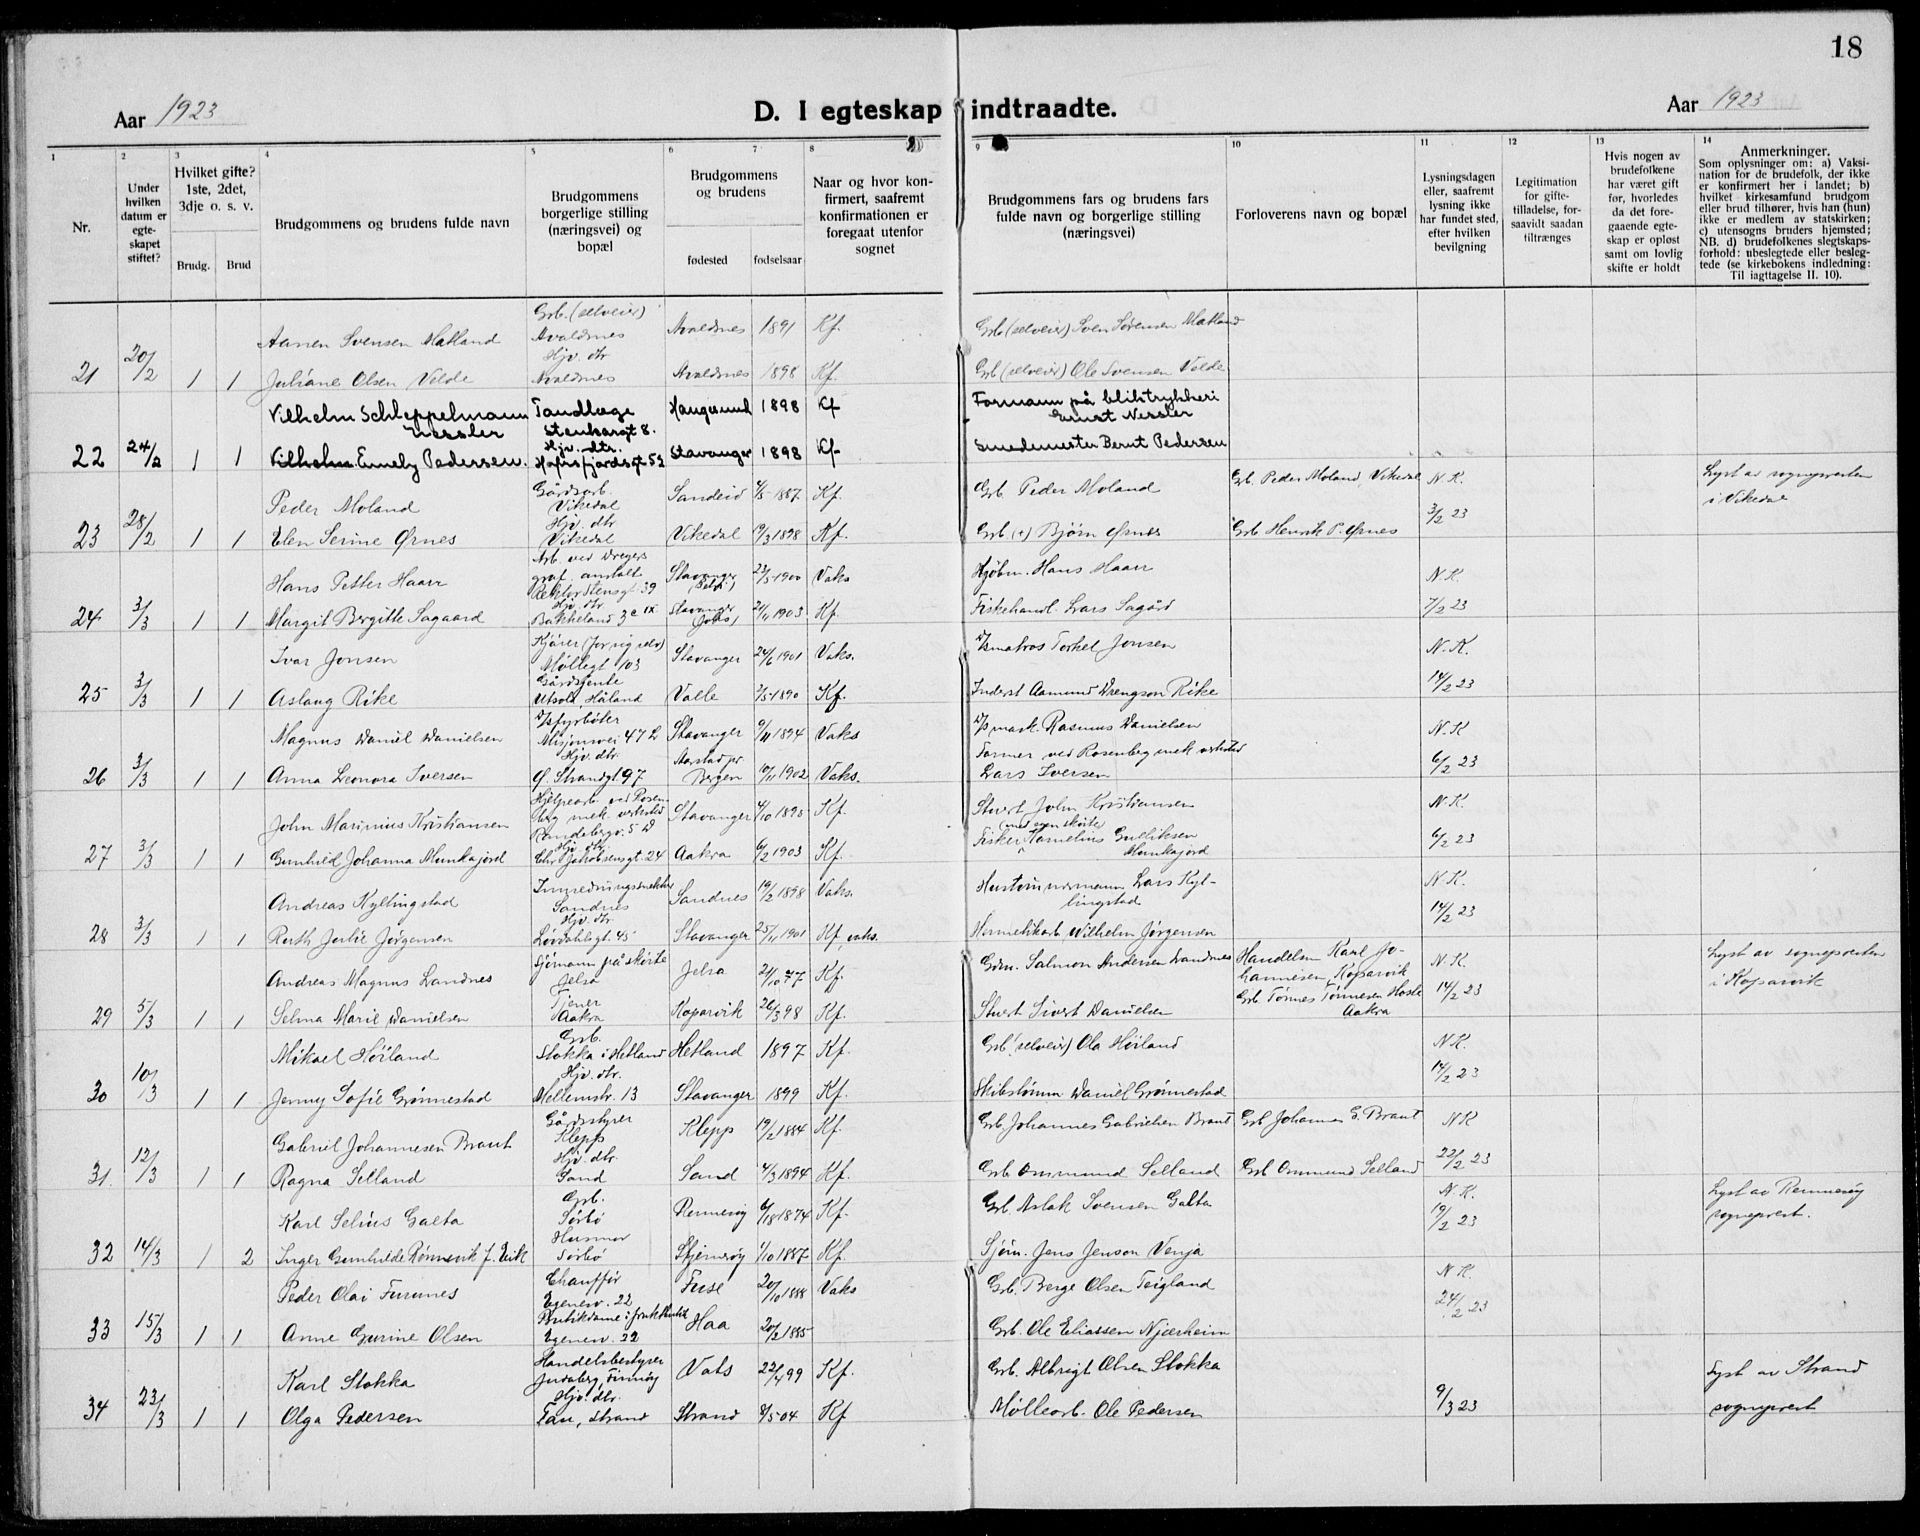 18
Aar 1923
D. I egteskap indtraadte.
Aar 1923
1
2
3
4
5
6
7
8
9
10
11
12
13
14
Nr.
Under
hvilken
datum er
egte-
skapet
stiftet?
Hvilket gifte?
1ste, 2det,
3dje o. s. v.
Brudg.
Brud
Brudgommens og brudens fulde navn
Brudgommens
borgerlige stilling
(næringsvei) og
bopæl
Brudgommens
og brudens
fødested
fødselsaar
Naar og hvor kon-
firmert, saafremt
konfirmationen er
foregaat utenfor
sognet
Brudgommens fars og brudens fars
fulde navn og borgerlige stilling
(næringsvei)
Forloverens navn og bopæl
Lysningsdagen
eller, saafremt
lysning ikke
har fundet sted,
efter hvilken
bevilgning
Legitimation
for gifte-
tilladelse, for-
saavidt saadan
tiltrænges
Hvis nogen av
brudefolkene
har været gift
før, hvorledes
da det fore-
gaaende egte-
skap er opløst
samt om lovlig
skifte er holdt
Anmerkninger.
Som oplysninger om: a) Vaksi-
nation for de brudefolk, der ikke
er konfirmert her i landet; b)
hvilket kirkesamfund brudgom
eller brud tilhører, hvis han (hun)
ikke er medlem av statskirken;
c) utensogns bruders hjemsted;
NB. d) brudefolkenes slegtskaps-
forhold: ubeslegtede eller besleg-
tede (se kirkebokens indledning:
Til iagttagelse II. 10).
Aanen Svensen Matland
Grb. (selveier)
Avaldsnes
Avaldsnes 1891 Kf.
Grb (selveier) Sven Sørensen Matland
21 20/2 1 1 Juliane Olsen Velde
Hjv. dtr
Avaldsnes
Avaldsnes 1898 Kf.
Grb (selveier) Ole Svensen Velde
Vilhelm Schleppelmann
Nessler
Tandlæge
Stenkargt 8.
Haugesund 1898 Kf
Formann på bliktrykkeri
Ernst Nessler
22 24/2 1 1 Vilhelm Emely Pedersen.
Hjv. dtr.
Hafrsfjordsgt 53
Stavanger 1898 Kf
Smedemester Bernt Pedersen
Peder Moland
Gårdsarb.
Vikedal
Sandeid 4/5-1887. Kf.
Grb. Peder Moland
Grb. Peder Moland, Vikedal
N.K.
Lyst av sognepresten
i Vikedal
23 28/2 1 1 Elen Serine Ørnes
Hjv. dtr
Vikedal
Vikedal 19/3 1898 Kf.
Grb. (+) Bjørn Ørnes
Grb Henrik P. Ørnes
3/2 23
Hans Petter Haarr
Arb. ved Dreyers
graf. anstalt
Rektor Stensgt. 39
Stavanger 23/5-1900 Vaks
Kjøbm. Hans Haarr
N.K.
24 3/3 1 1 Margit Bergitte Sagaard
Hjv. dtr
Bakkeland 3c
Stavanger 21/11 1903. Kf.
Fiskehandl. Lars Sagård
7/2 23
Ivar Jonsen
Møllegt 103
Stavanger 24/6 1901 Vaks.
D/smatros Torkel Jonsen
N.K.
25 3/3 1 1 Aslaug Rike
Gårdsjente
Utsola, Håland
Valle 2/5-1890 Kf.
Inderst Aamund Drengson Rike
14/2 23
Magnus Daniel Danielsen
D/sfyrbøter
Misjonsvei 47 b
Stavanger 9/11 1894 Vaks
D/smask. Rasmus Danielsen
N.K
26 3/3 1 1 Anna Leonora Iversen
Hjv. dtr.
Ø. Strandgt 97
Bergen 10/11 1902 Vaks.
Former ved Rosenberg mek. verksted
Lars Iversen
6/2 23
John Marinius Kristiansen
Hjelpearb. ved Rosen-
berg mek. verksted
Randabergv. 5 D
Stavanger 4/10 1895 Kf.
Stuert John Kristiansen
N.K.
27 3/3 1 1 Gunhild Johanna Munkajord
Hjv. dtr.
Chr. Jakobsensgt. 24
Aakra 6/2 1903 Kf.
(med egen skøite)
Fisker Kornelius Gulliksen
Munkajord
6/2 23
Andreas Kyllingstad
Innredningssnekker
Sandnes
Sandnes 19/2 1898 Vaks.
Hustømmermann Lars Kyl-
lingstad
N.K.
28 3/3 1 1 Ruth Julie Jørgensen
Hjv. dtr.
Løvdahlsgt. 45
Stavanger 25/11 1901 Kf, vaks.
Hermetikarb. Wilhelm Jørgensen
14/2 23
Andreas Magnus Landnes
Sjømann på skøite
Jelsa
Jelsa 21/10 77 Kf.
Gdm. Salmon Andersen Landnes
Handelsm Karl Jo-
hannesen, Kopervik
N.K.
Lyst av sognepresten
i Kopervik
29 5/3 1 1 Selma Marie Danielsen
Tjener
Aakra
Kopervik 26/3 98 Kf.
Stuert Sivert Danielsen
Grb Tønnes Tønnesen Hosle
Aakra
14/2 23
Mikael Høiland
Grb.
Stokka i Hetland
Hetland 1897 Kf.
Grb (selveier) Ola Høiland
N.K.
30 10/3 1 1 Jenny Sofie Grønnestad
Hjv. dtr.
Mellemstr. 13
Stavanger 1899 Kf.
Skibstømm Daniel Grønnestad
14/2 23
Gabriel Johannesen Braut
Gårdsstyrer
Klepp
Klepp 19/2 1884 Kf.
Grb. Johannes Gabrielsen Braut
Grb Johannes G. Braut
N.K
31. 12/3 1 1 Ragna Selland
Hjv. dtr.
Sand
Sand 4/3 1894 Kf.
Grb. Ommund Selland
Grb Ommund Selland
22/2 23
Karl Selius Galta
Grb.
Sørbø
Rennesøy 6/18 1874 Kf.
Grb. Aslak Svensen Galta
N.K.
19/2 23
Lyst av Rennesøy
sogneprest.
32 14/3 1 2 Inger Gunhilde Rønnevik f. Vik
Husmor
Sørbø
Stjernerøy 1/10 1887 Kf.
Sjøm. Jens Jenson Venja
Peder Olai Furunes
Chauffør
Egenesv. 22
Fuse 20/10 1888 Vaks
Grb. Berge Olsen Teigland
N.K.
33 15/3 1 1 Anne Gurine Olsen
Butikdame i fruktbutik
Egenesv. 22
Haa 20/2 1885
Grb. Ole Eliassen Njærheim
24/2 23
Karl Stokka
Handelsbestyrer
Judaberg, Finnøy
Vats 22/4 99 Kf.
Grb. Albrigt Olsen Stokka
Lyst av Strand
sogneprest
34 23/3 1 1 Olga Pedersen
Hjv. dtr.
Tau, Strand
Strand 8/5 04 Kf
Møllearb. Ole Pedersen
9/3 23